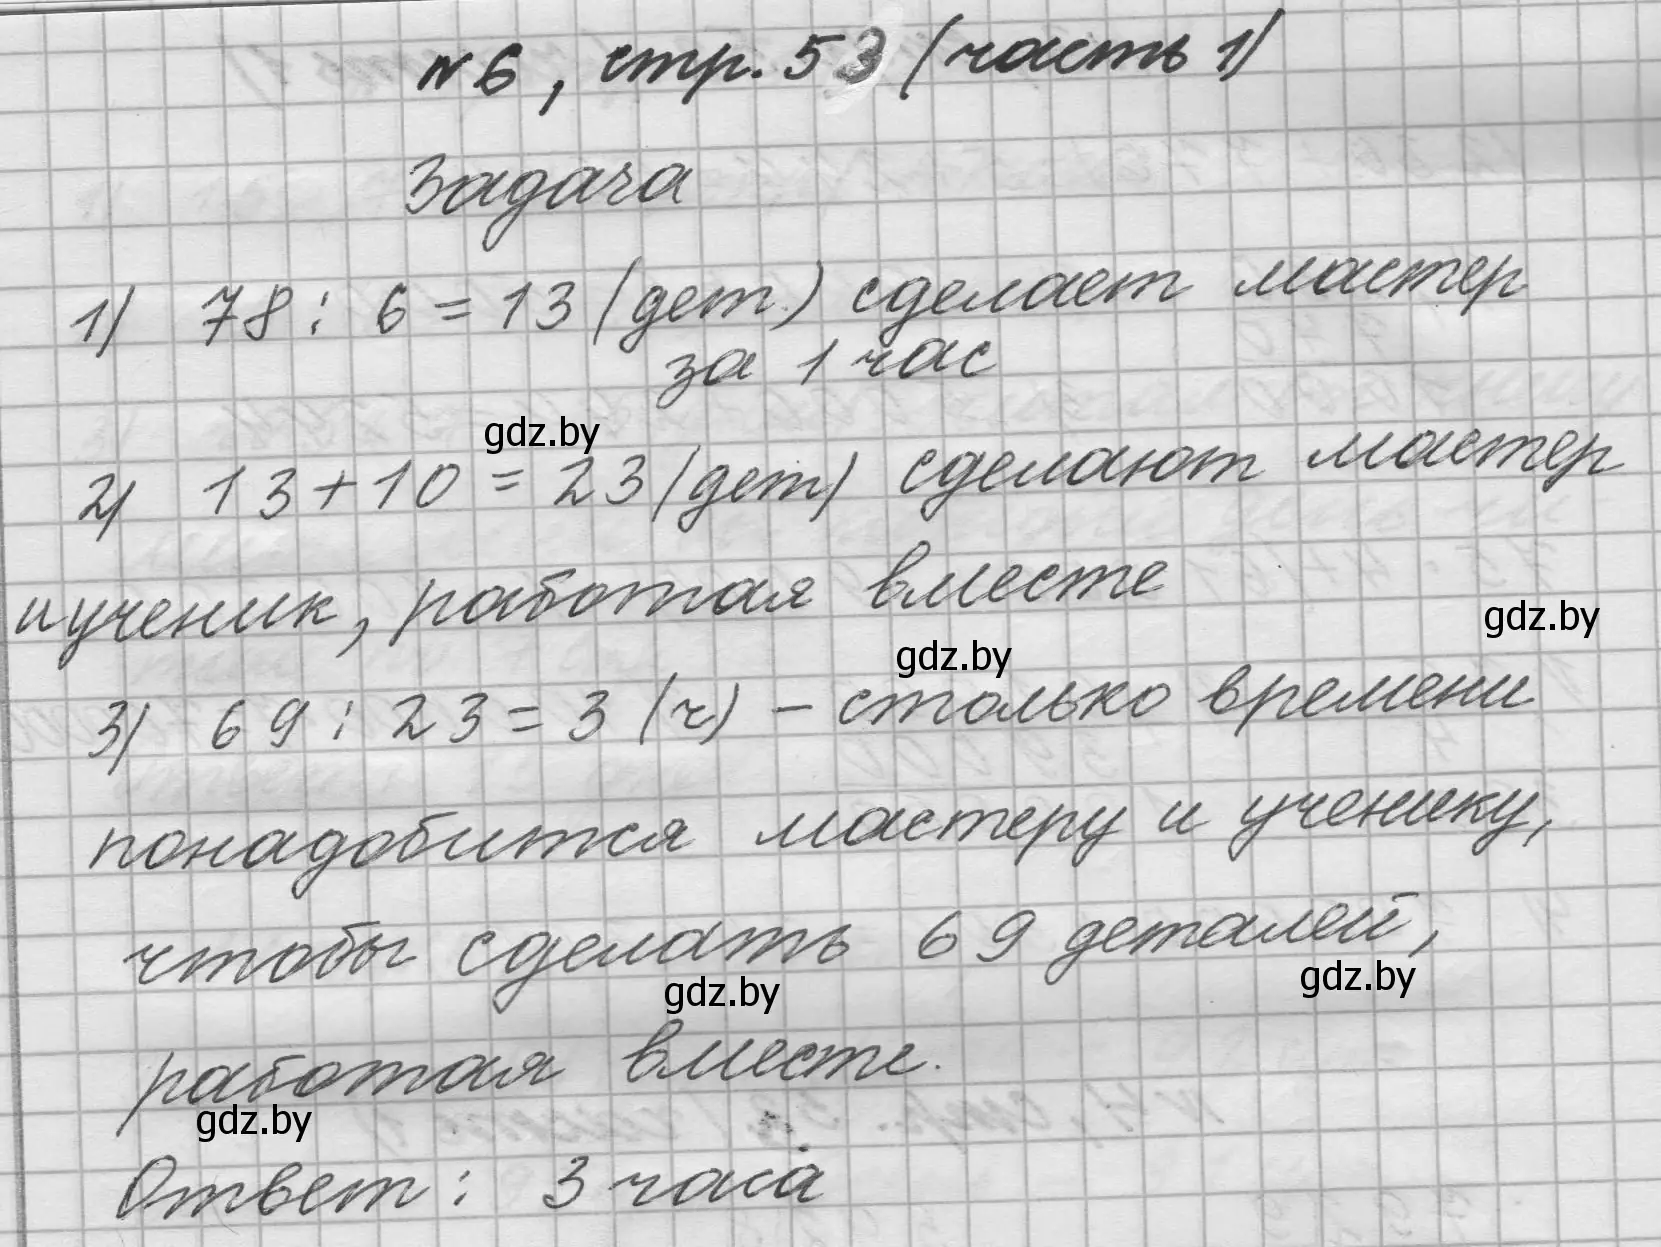 №6, стр. 53 (часть 1)
Задача
1) 78 : 6 = 13 (дет.) сделает мастер
за 1 час
gdz.by
2) 13 + 10 = 23 (дет) сделают мастер
и ученик, работая вместе
gdz.by
gdz.by
3) 69 : 23 = 3 (ч) - столько времени
понадобится мастеру и ученику,
чтобы сделать 69 деталей,
gdz.by
gdz.by
работая вместе.
gdz.by
Ответ: 3 часа